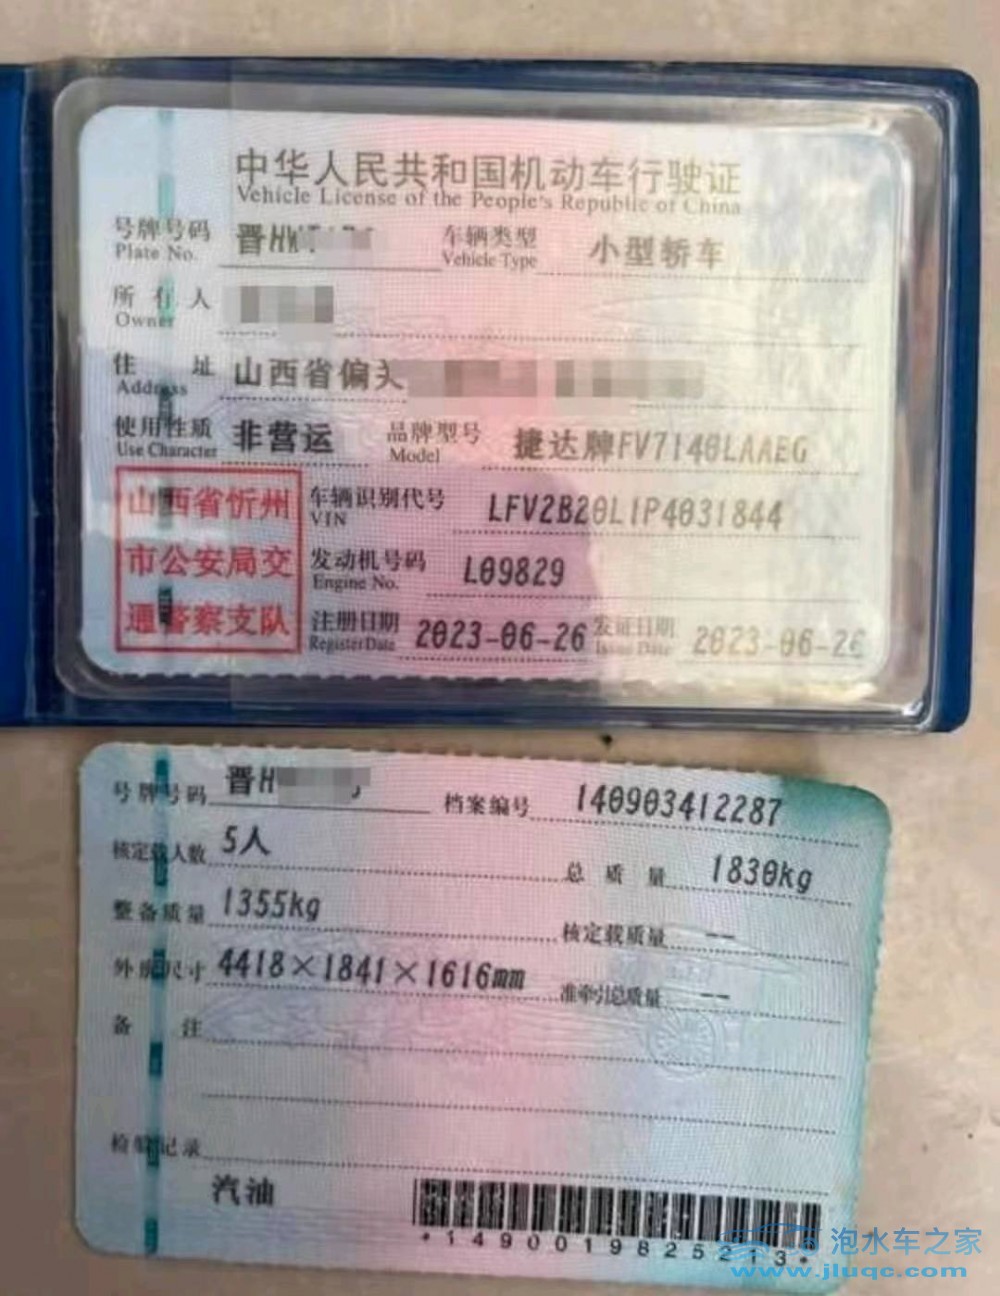 中华人民共和国机动车行驶证
Vehicle License of the People's Republic of China
号牌号码 晋HW 车辆类型 小型轿车
Plate No. Vehicle Type
所有人
Owner
住址 山西省偏关
Address
使用性质 非营运 品牌型号 捷达牌FV7140LAAEG
Use Character Model
山西省忻州
市公安局交
通警察支队
车辆识别代号 LFV2B20L1P4031844
VIN
发动机号码 L09829
Engine No.
注册日期 2023-06-26 发证日期 2023-06-26
Register Date Issue Date
号牌号码 晋H 档案编号 140903412287
核定载人数 5人 总质量 1830kg
整备质量 1355kg 核定载质量 --
外廓尺寸 4418×1841×1616mm 准牵引总质量 --
备注
检验记录
汽油
*1490019825213*
泡水车之家
www.jluqc.com